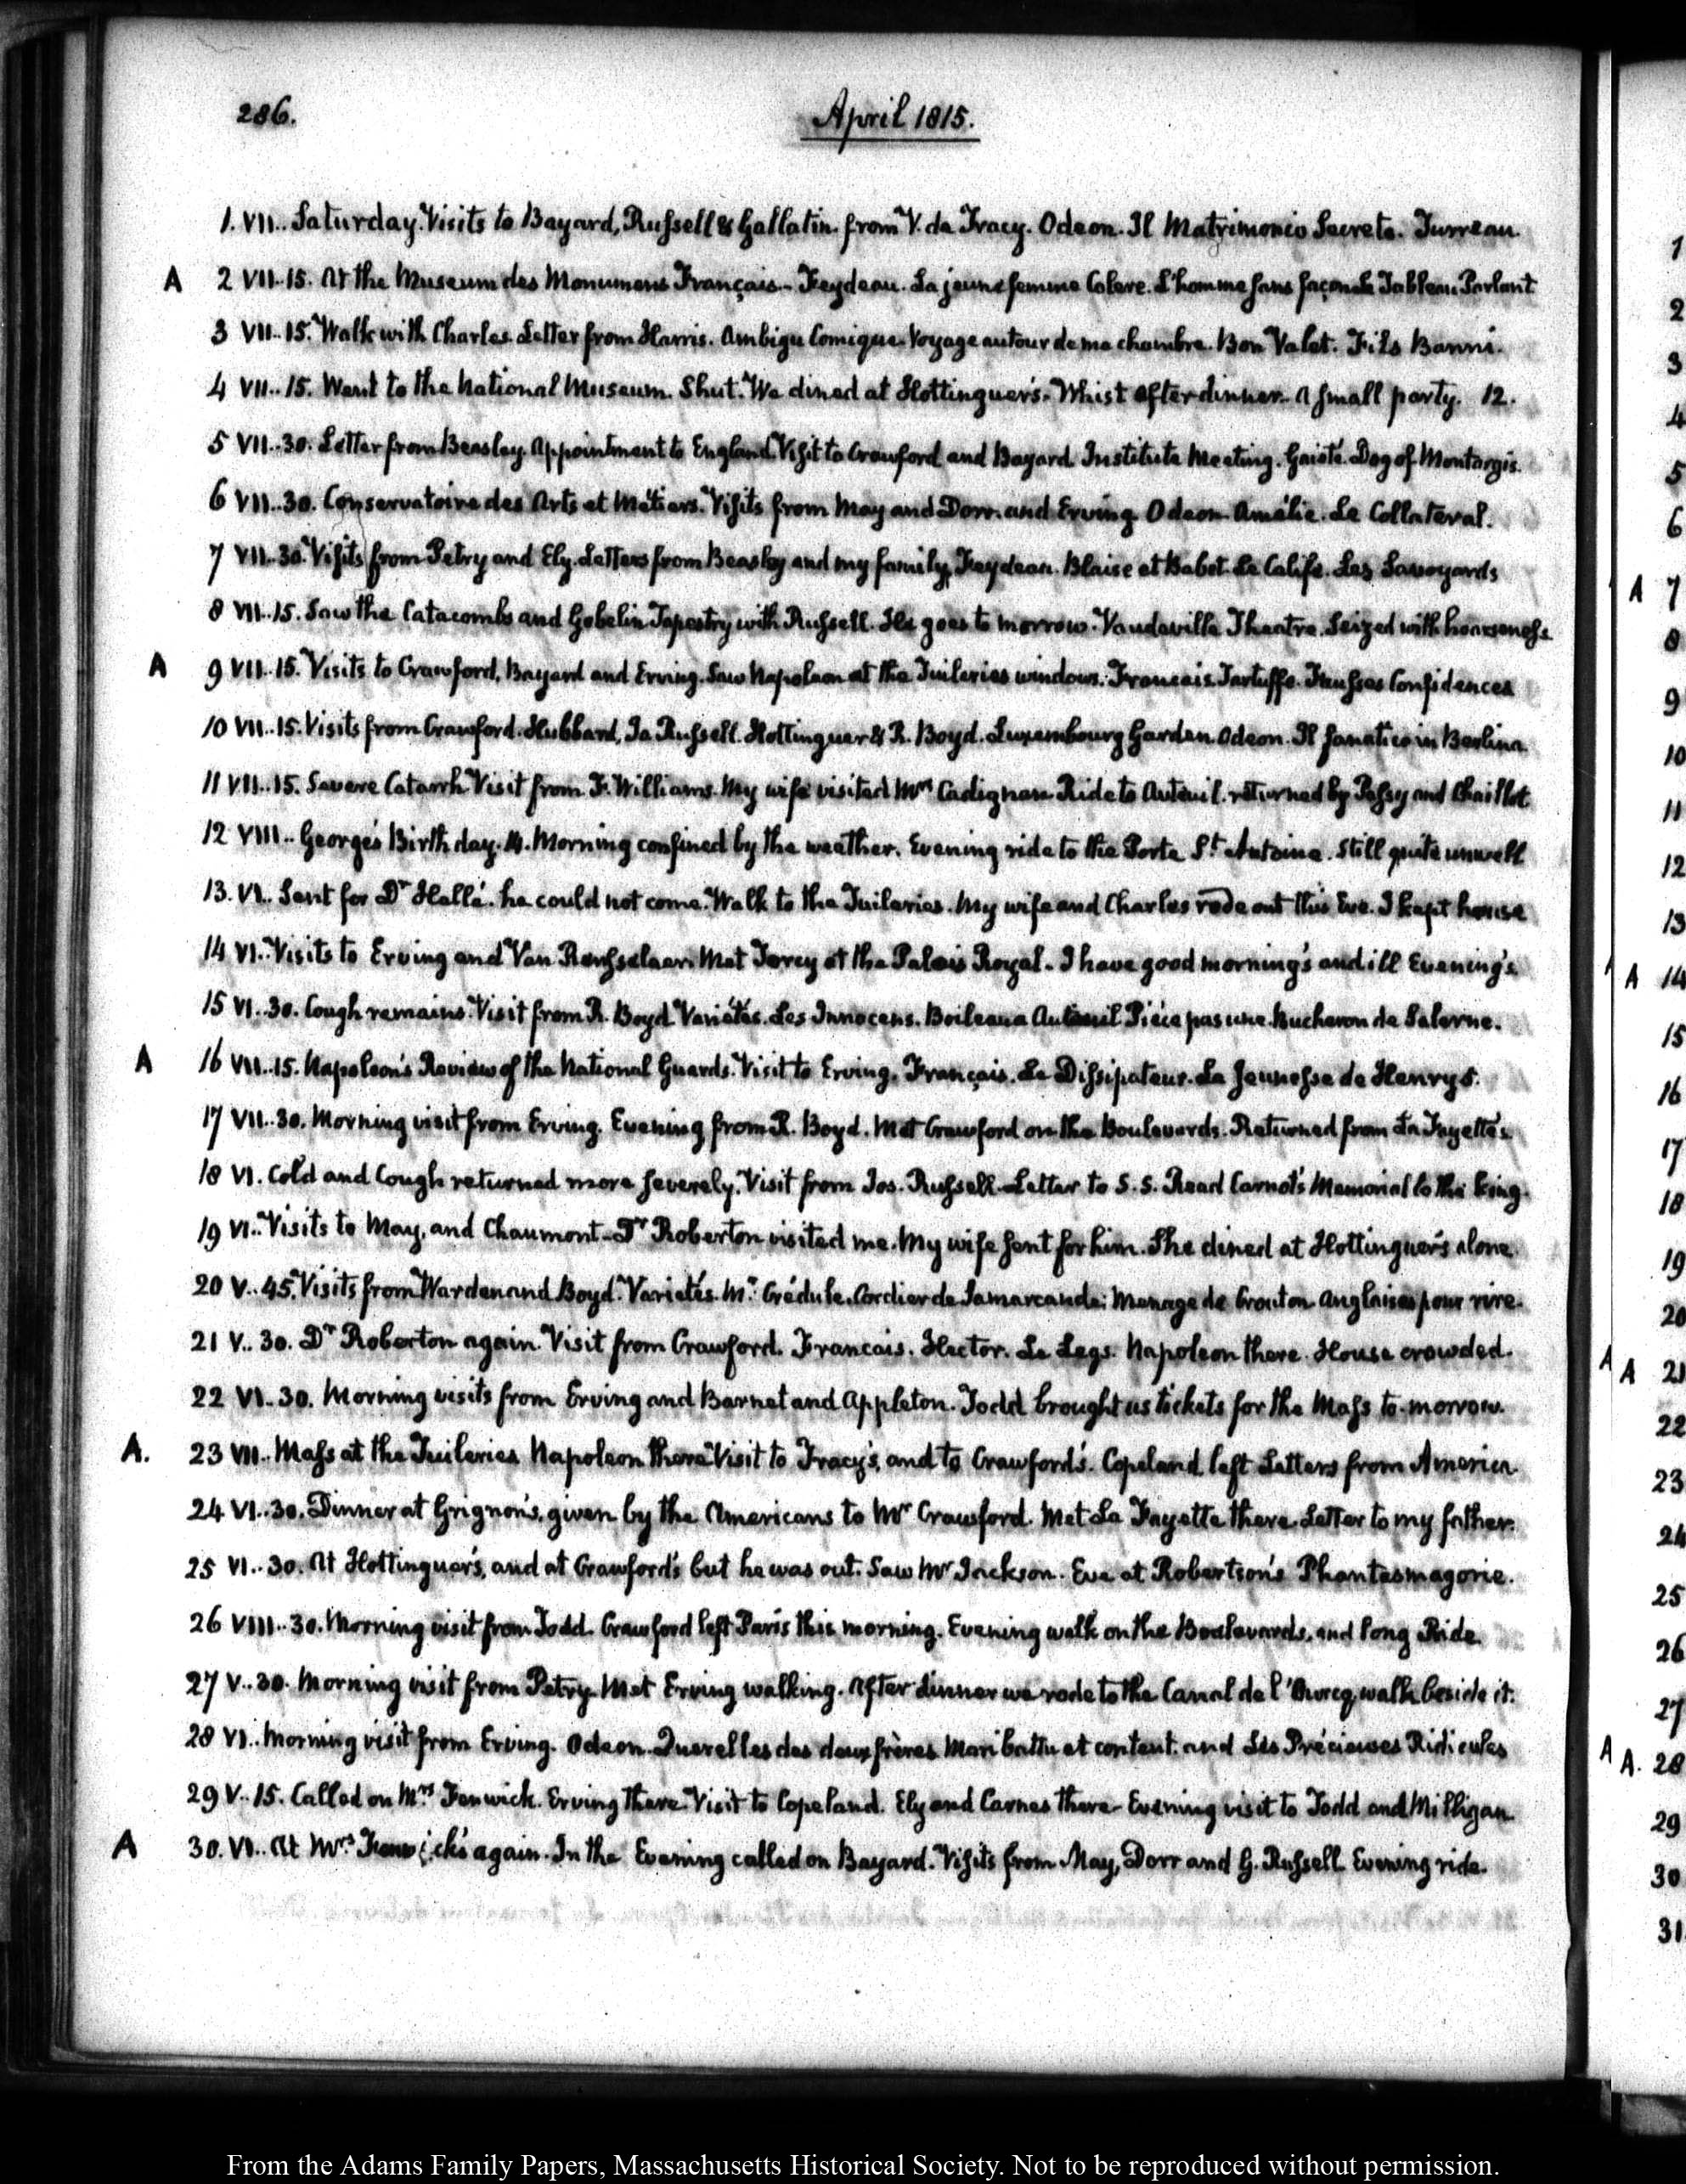 286.
April 1815.
1. VII.. Saturday. Visits to Bayard, Russell & Gallatin. from V. de Tracy. Odeon. Il Matrimonio Secreto. Turreau.
A 2 VII..15. At the Museum des Monumens Français.. Feydeau. La jeune femme Colere. L'homme sans façon Tableau Parlant
3 VII..15. Walk with Charles. Letter from Harris. Ambigu Comique. Voyage autour de ma chambre. Bon Valet. Fils Banni.
4 VII..15. Went to the National Museum. Shut. We dined at Hottinguer's. Whist after dinner. A small party. 12.
5 VII..30. Letter from Beasley. Appointment to England. Visit to Crawford and Bayard. Institute Meeting. Gaieté. Dog of Montargis.
6 VII..30. Conservatoire des Arts et Métiers. Visits from May and Dorr. and Erving. Odeon. Amélie. Le Collateral.
7 VII..30. Visits from Petry and Ely. Letters from Beasley and my family. Feydeau. Blaise et Babet. Le Calife. Les Savoyards
8 VII..15. Saw the Catacombs and Gobelin Tapestry with Russell. He goes to morrow. Vaudeville Theatre. Seized with hoarseness.
A 9 VII..15. Visits to Crawford, Bayard and Erving. Saw Napoleon at the Tuileries windows. Francais. Tartuffe. Fausses Confidences
10 VII..15. Visits from Crawford. Hubbard, Jo Russell. Hottinguer & R. Boyd. Luxembourg Garden. Odeon. Il fanatico in Berlina.
11 VII..15. Severe Catarrh. Visit from F. Williams. My wife visited Mrs Cadignan Ride to Auteuil. returned by Passy and Chaillot
12 VIII.. George's Birth day. 14. Morning confined by the weather. Evening ride to the Porte St. Antoine. Still quite unwell
13. VI.. Sent for Dr Hallé. he could not come. Walk to the Tuileries. My wife and Charles rode out this Eve. I kept house
14 VI.. Visits to Erving and Van Rensselaer. Met Torcy at the Palais Royal. I have good morning's and ill Evening's
15 VI..30. Cough remains. Visit from R. Boyd. Variétés. Les Innocens. Boileau a Auteuil. Pièce pas une. Bucheron de Salerne.
A 16 VII..15. Napoleon's Review of the National Guards. Visit to Erving. Français. Le Dissipateur. La Jeunesse de Henry 5.
17 VII..30. Morning visit from Erving. Evening from R. Boyd. Met Crawford on the Boulevards. Returned from La Fayette's
18 VI. Cold and Cough returned more severely. Visit from Jos. Russell. Letter to S.S. Read Carnot's Memorial to the king.
19 VI.. Visits to May, and Chaumont. Dr Roberton visited me. My wife sent for him. She dined at Hottinguer's alone.
20 V..45. Visits from Warden and Boyd. Variétés. Mr. Crédule. Cordier de Samarcande: Menage de Grouton. Anglaises pour rire.
21 V..30. Dr Roberton again. Visit from Crawford. Francais. Hector. Le Legs. Napoleon there. House crowded.
22 VI..30. Morning visits from Erving and Barnet and Appleton. Todd brought us tickets for the Mass to-morrow.
A. 23 VII.. Mass at the Tuileries Napoleon there. Visit to Tracy's, and to Crawford's. Copeland left Letters from America
24 VI..30. Dinner at Grignon's, given by the Americans to Mr Crawford. Met La Fayette there. Letter to my father.
25 VI..30. At Hottinguer's, and at Crawford's but he was out. Saw Mr Jackson. Eve at Robertson's Phantasmagorie.
26 VIII..30. Morning visit from Todd. Crawford left Paris this morning. Evening walk on the Boulevards, and long Ride.
27 V..30. Morning visit from Petry. Met Erving walking. After dinner we rode to the Canal de l'Ourcq, walk beside it.
28 VI.. Morning visit from Erving. Odeon. Querelles des deux frères Mari battu et content. and Les Précieuses Ridicules
29 V..15. Called on Mrs. Fenwick. Erving there. Visit to Copeland. Ely and Carnes there. Evening visit to Todd and Milligan.
A 30. VI.. At Mrs. Fenwick's again. In the Evening called on Bayard. Visits from May, Dorr and G. Russell. Evening ride.
1
2
3
4
5
6
A 7
8
9
10
11
12
13
A 14
15
16
17
18
19
20
A A 21
22
23
24
25
26
27
A A. 28
29
30
31
From the Adams Family Papers, Massachusetts Historical Society. Not to be reproduced without permission.